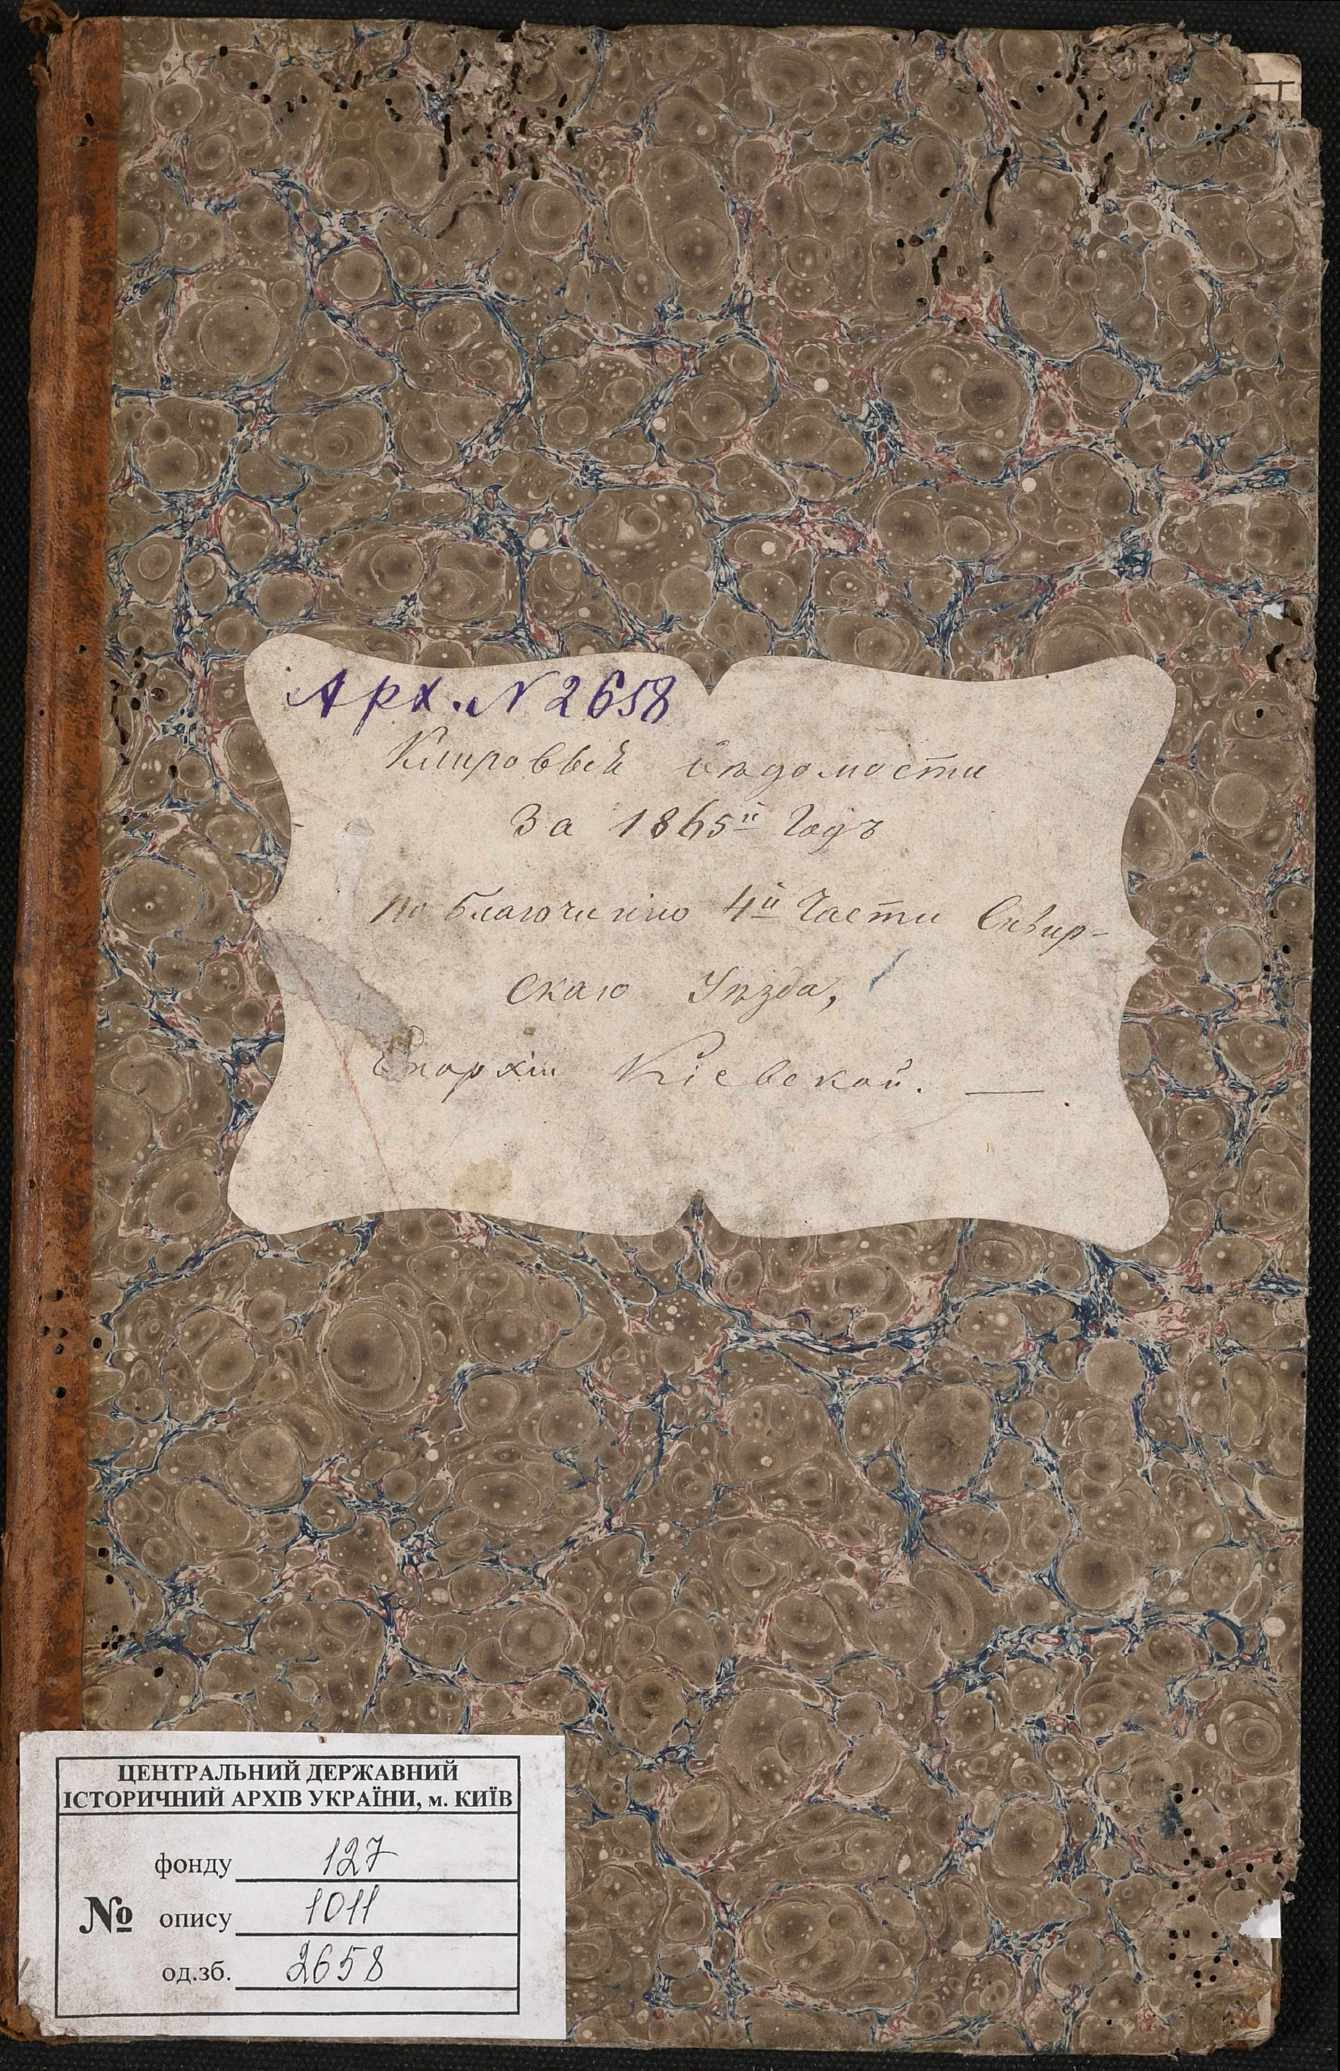 Арх. № 2658
Клировыя вѣдомости
За 1865й Годъ
по благочинію 4й Части Сквир-
скаго Уѣзда,
Епархіи Кіевской. —
ЦЕНТРАЛЬНИЙ ДЕРЖАВНИЙ
ІСТОРИЧНИЙ АРХІВ УКРАЇНИ, м. КИЇВ
фонду 127
№ опису 1011
од.зб. 2658